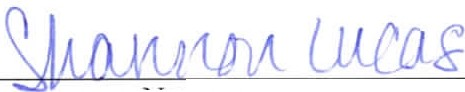 Shannon Lucas